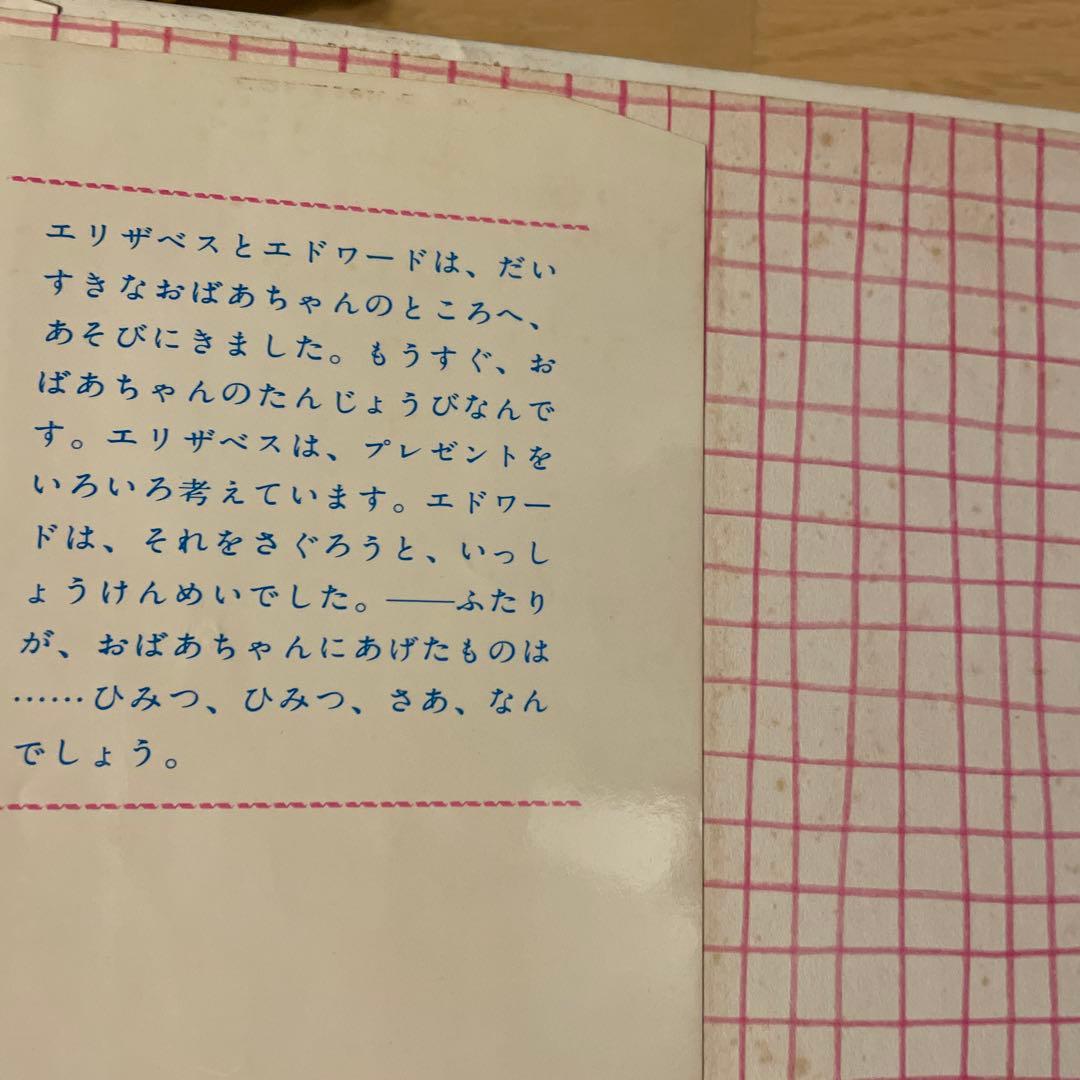 エリザベスとエドワードは、だい
すきなおばあちゃんのところへ、
あそびにきました。もうすぐ、お
ばあちゃんのたんじょうびなんで
す。エリザベスは、プレゼントを
いろいろ考えています。エドワー
ドは、それをさぐろうと、いっし
ょうけんめいでした。――ふたり
が、おばあちゃんにあげたものは
……ひみつ、ひみつ、さあ、なん
でしょう。